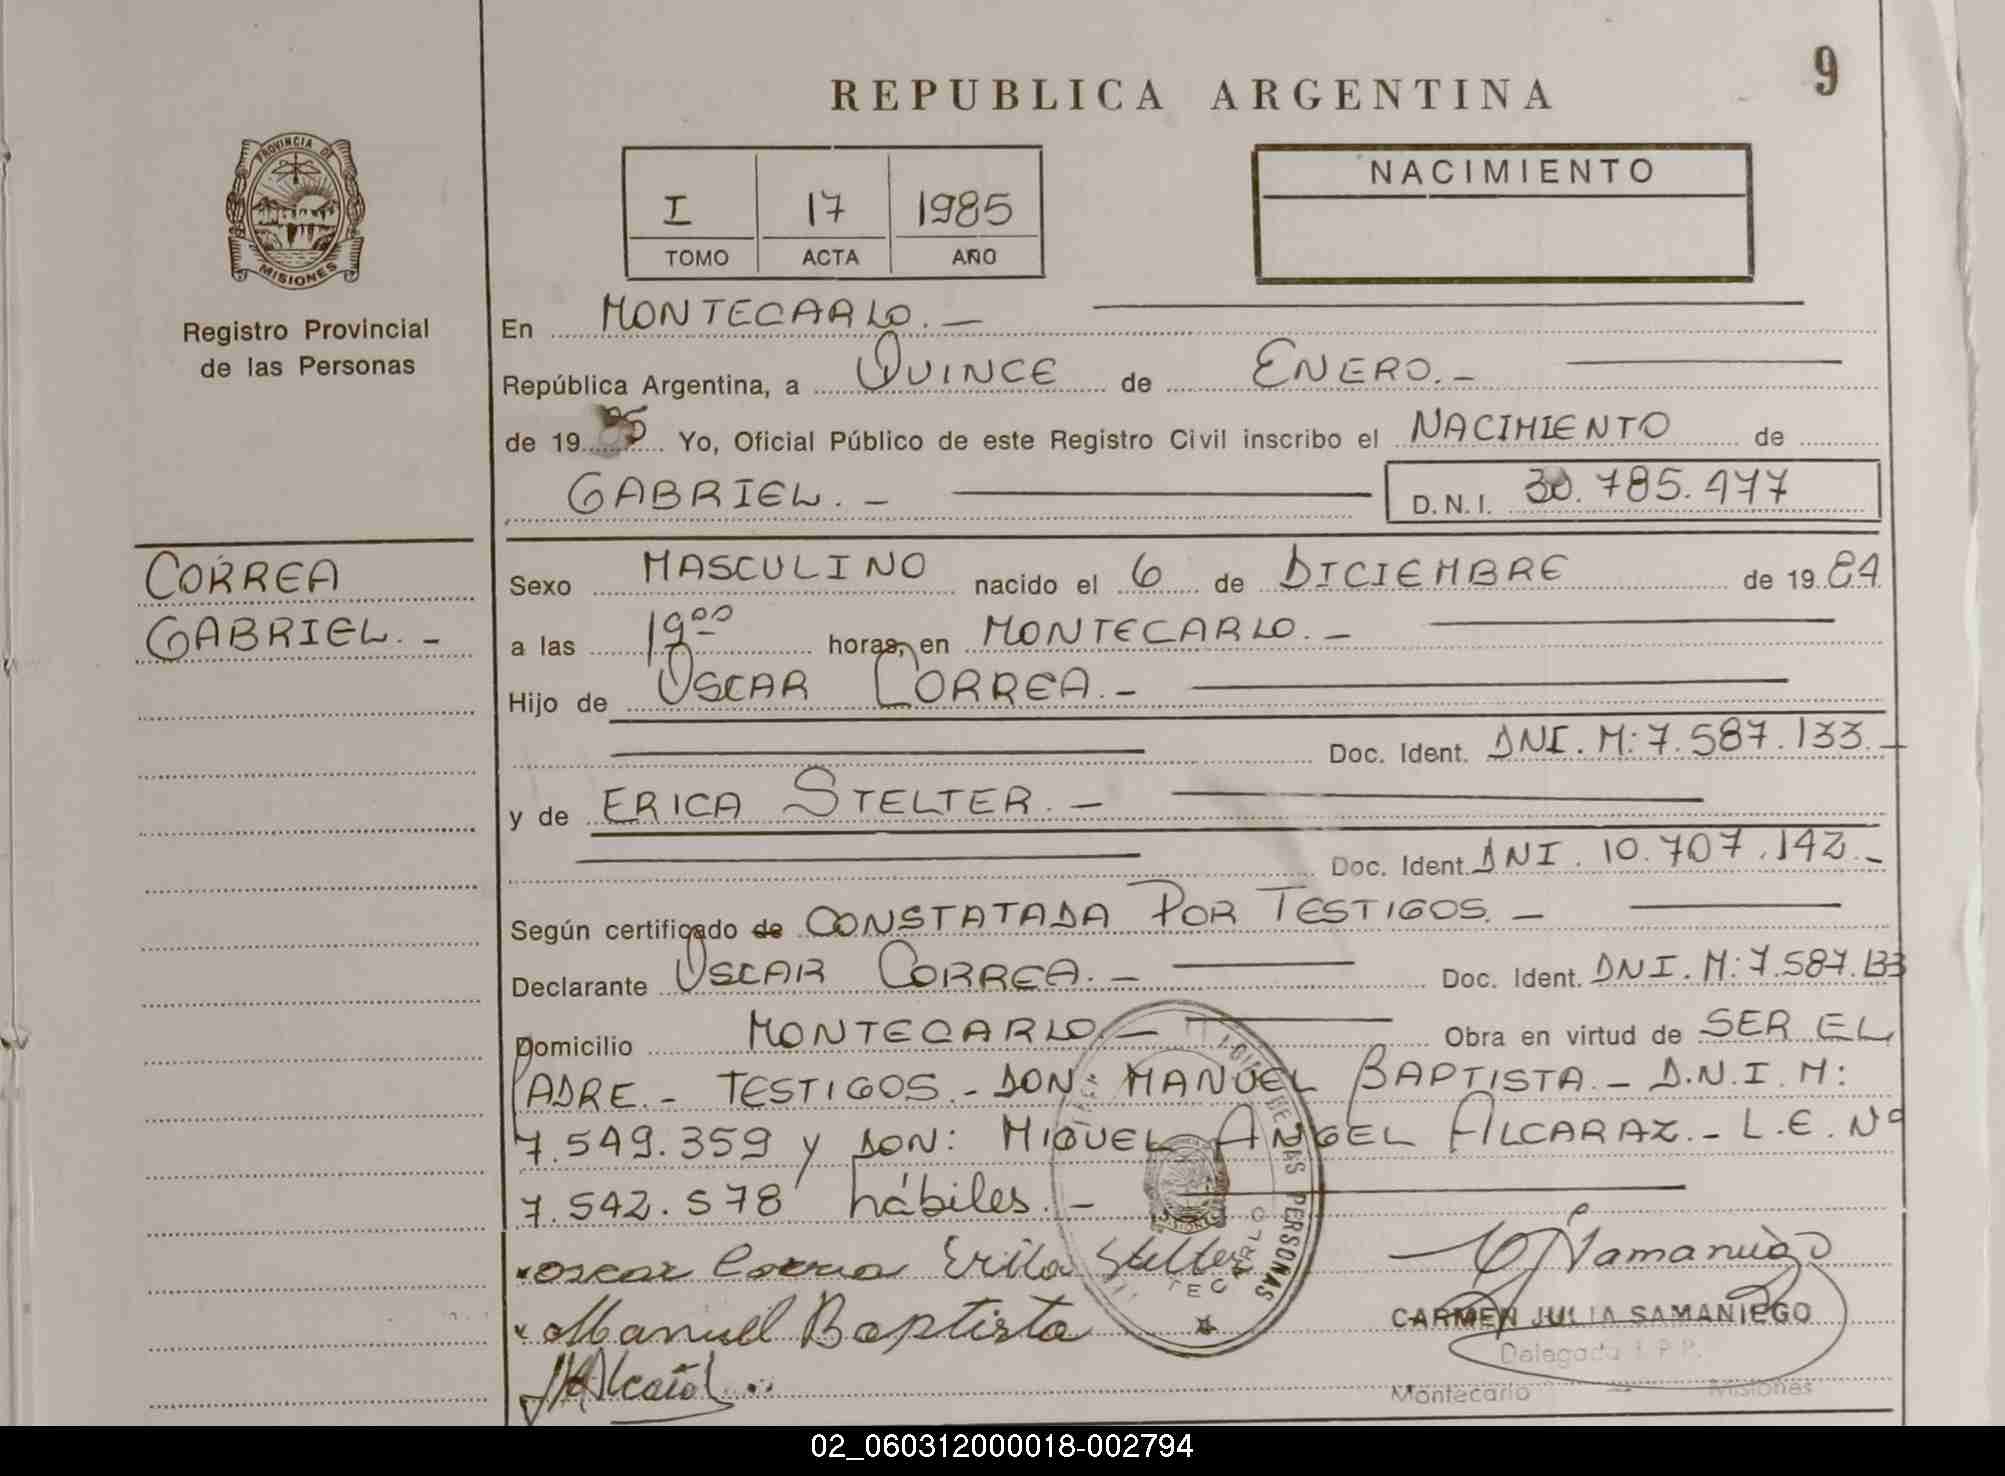 9
REPUBLICA ARGENTINA
PROVINCIA DE
MISIONES
Registro Provincial
de las Personas
I 17 1985
TOMO ACTA AÑO
NACIMIENTO
En MONTECARLO. —
República Argentina, a QUINCE de ENERO. -
de 19 85 Yo, Oficial Público de este Registro Civil inscribo el NACIMIENTO de
GABRIEL. - D.N.I. 30.785.477
CORREA
GABRIEL. -
Sexo MASCULINO nacido el 6 de DICIEMBRE de 19 84
a las 19⁰⁰ horas, en MONTECARLO. -
Hijo de OSCAR CORREA. -
Doc. Ident. DNI. M: 7.587.133. -
y de ERICA STELTER. -
Doc. Ident. DNI. 10.707.142. -
Según certificado de CONSTATADA POR TESTIGOS. -
Declarante OSCAR CORREA. - Doc. Ident. DNI. M: 7.587.133
Domicilio MONTECARLO. - Obra en virtud de SER EL
PADRE. - TESTIGOS. - DON: MANUEL BAPTISTA. - D.N.I. M:
7.549.359 y DON: MIGUEL ANGEL ALCARAZ. - L.E. Nº
7.542.578 hábiles. -
oscar Correa Erica Stelter
Manuel Baptista
DE LAS PERSONAS
CARMEN JULIA SAMANIEGO
Delegada
Montecarlo - Misiones
02_060312000018-002794